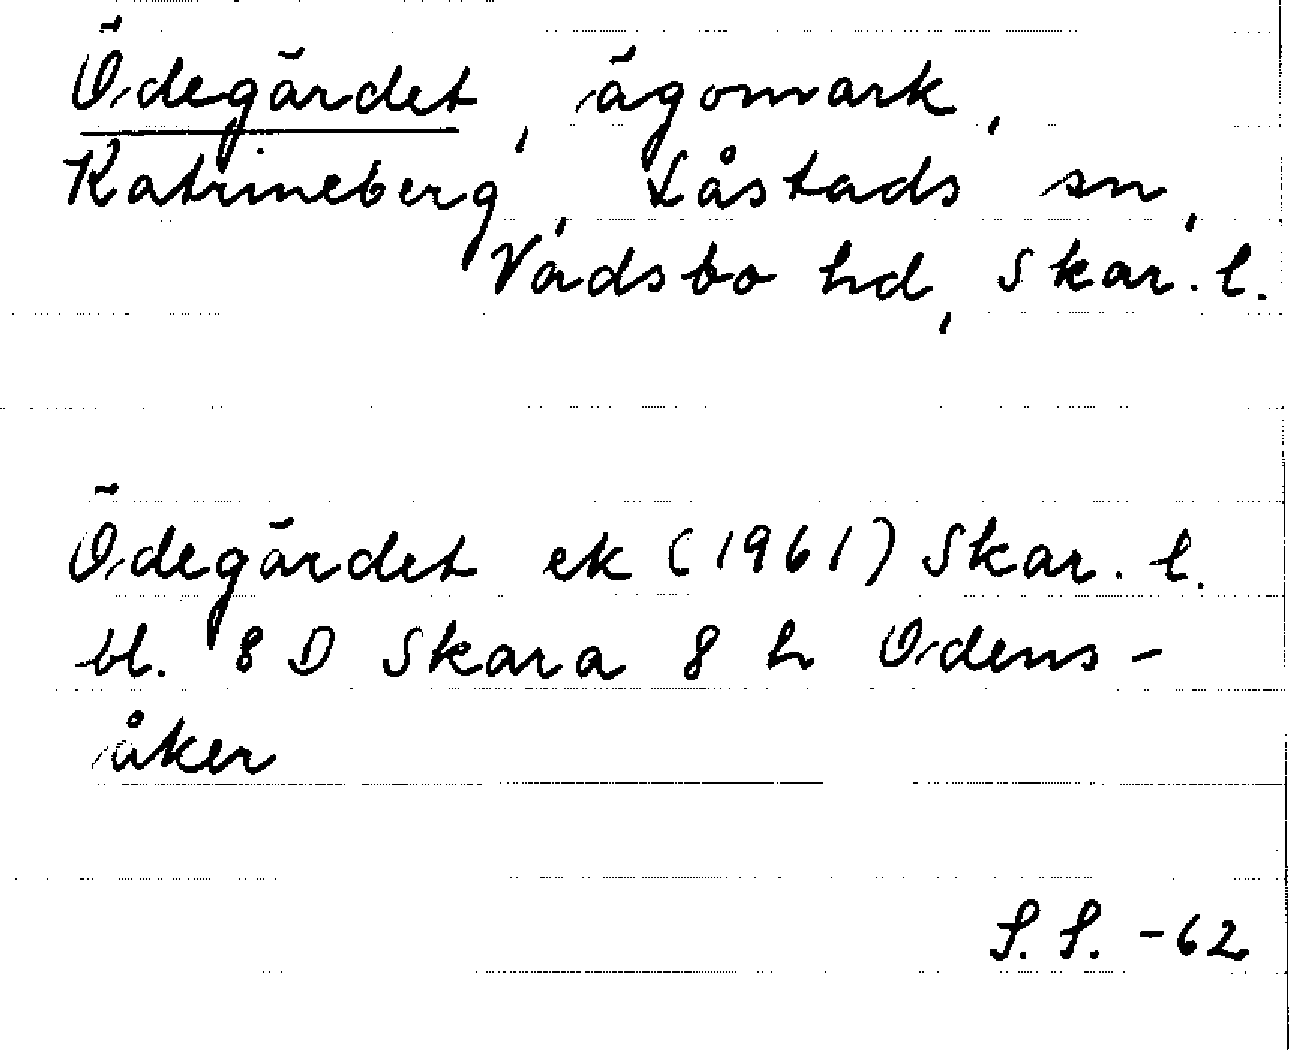 Ödegärdet, ägomark,
Katrineberg, Låstads sn,
Vadsbo hd, Skar. l.
Ödegärdet ek (1961) Skar. l.
bl. 8 D Skara 8 h Odens-
åker
S. S. -62